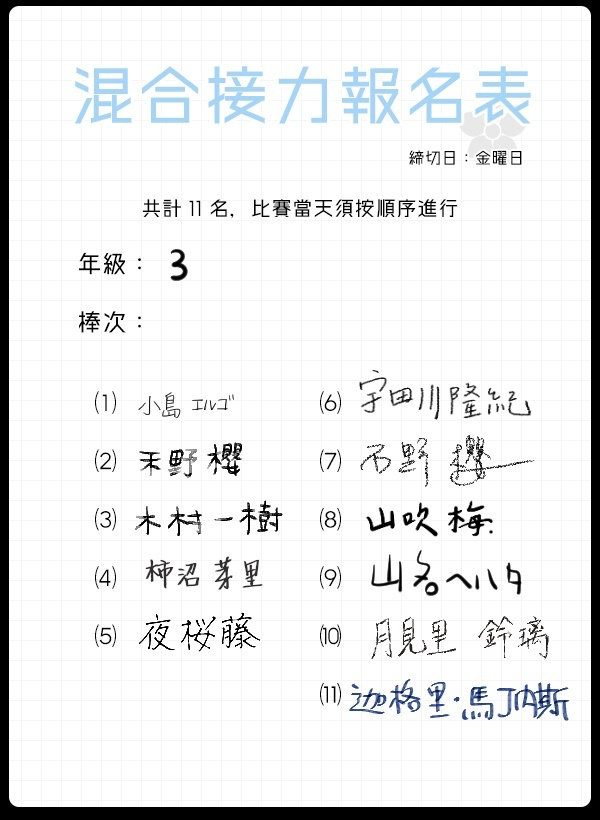 混合接力報名表
締切日：金曜日
共計 11 名，比賽當天須按順序進行
年級： 3
棒次：
(1) 小島 エルゴ
(2) 禾野櫻
(3) 木村一樹
(4) 柿沼芽里
(5) 夜桜藤
(6) 宇田川隆紀
(7) 石野櫻
(8) 山吹梅
(9) 山名ヘルタ
(10) 月見里 鈴璃
(11) 迦格里·馬爾納斯